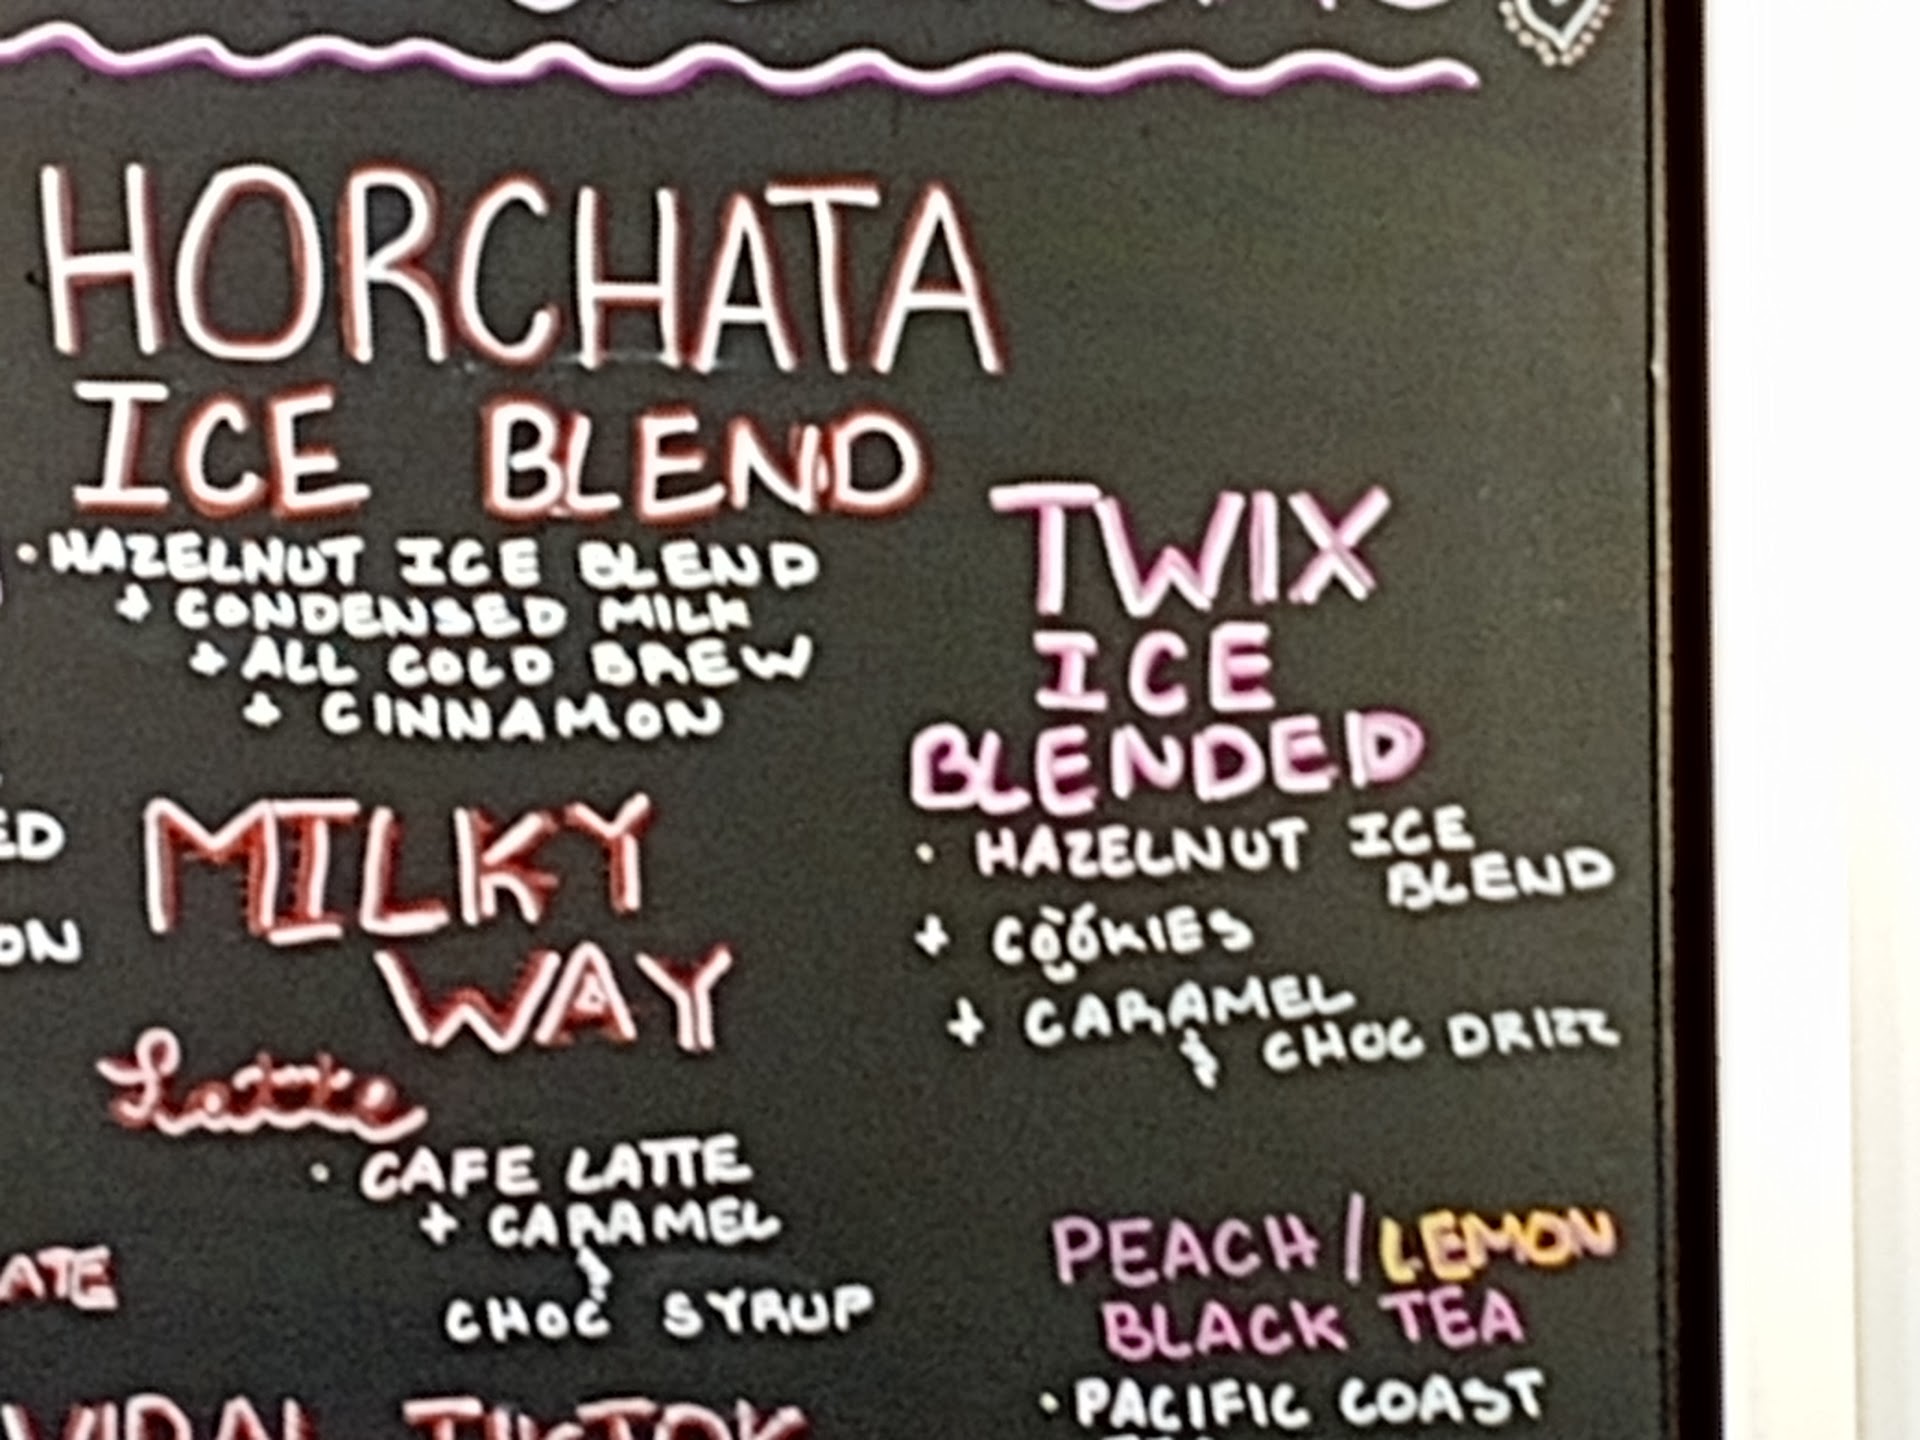 HORCHATA
ICE BLEND
• HAZELNUT ICE BLEND
+ CONDENSED MILK
+ ALL COLD BREW
+ CINNAMON
TWIX
ICE
BLENDED
• HAZELNUT ICE
BLEND
+ COOKIES
+ CARAMEL
& CHOC DRIZZ
MILKY
WAY
Latte
• CAFE LATTE
+ CARAMEL
&
CHOC SYRUP
PEACH / LEMON
BLACK TEA
• PACIFIC COAST
ED
ON
ATE
VIRAL TIKTOK